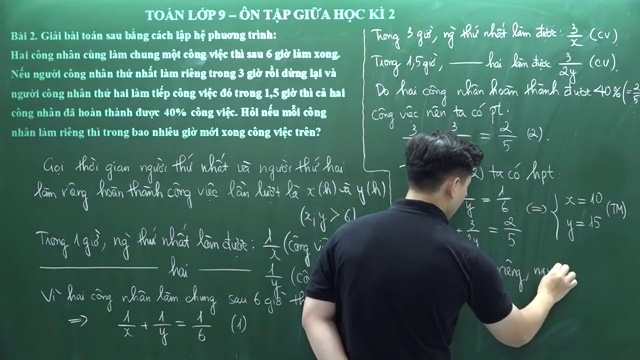 TOÁN LỚP 9 – ÔN TẬP GIỮA HỌC KÌ 2
Bài 2. Giải bài toán sau bằng cách lập hệ phương trình:
Hai công nhân cùng làm chung một công việc thì sau 6 giờ làm xong.
Nếu người công nhân thứ nhất làm riêng trong 3 giờ rồi dừng lại và
người công nhân thứ hai làm tiếp công việc đó trong 1,5 giờ thì cả hai
công nhân đã hoàn thành được 40% công việc. Hỏi nếu mỗi công
nhân làm riêng thì trong bao nhiêu giờ mới xong công việc trên?
Gọi thời gian người thứ nhất và người thứ hai
làm riêng hoàn thành công việc lần lượt là x(h) và y(h)
(x,y > 6)
Trong 1 giờ, ng thứ nhất làm được: 1/x (công
hai 1/y (cô
Vì hai công nhân làm chung sau 6 giờ th
=> 1/x + 1/y = 1/6 (1)
Trong 3 giờ, ng thứ nhất làm được: 3/x (CV)
Trong 1,5 giờ, hai làm được 3/2y (CV)
Do hai công nhân hoàn thành được 40% (= 2/
công việc nên ta có pt:
3 3 = 2/5 (2).
) ta có hpt:
y = 1/6
3/2y = 2/5
<=> { x = 10
y = 15 (TM)
riêng,